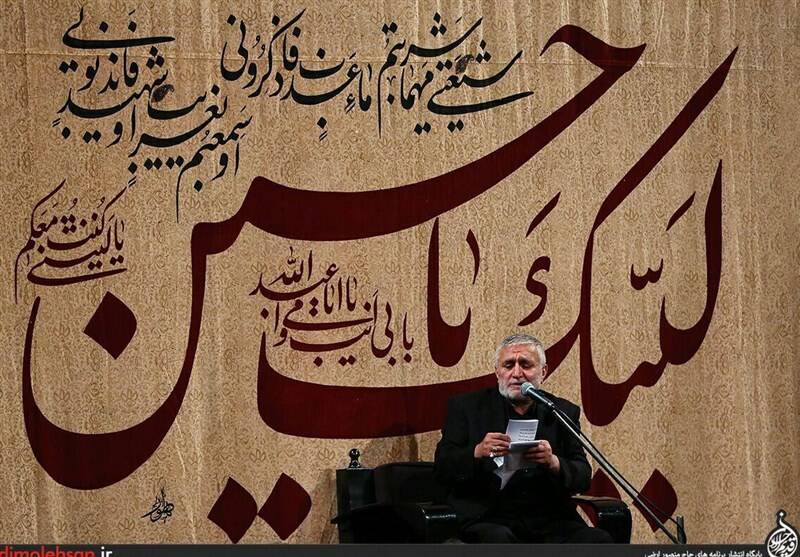 شیعتی مهما شربتم ماء عذب فاذکرونی
او سمعتم بغریب او شهید فاندبونی
لبیک یا حسین
یا لیتنی کنت معکم
بابی انت و امی یا اباعبدالله
dimolehsan.ir
پایگاه انتشار برنامه های حاج منصور ارضی